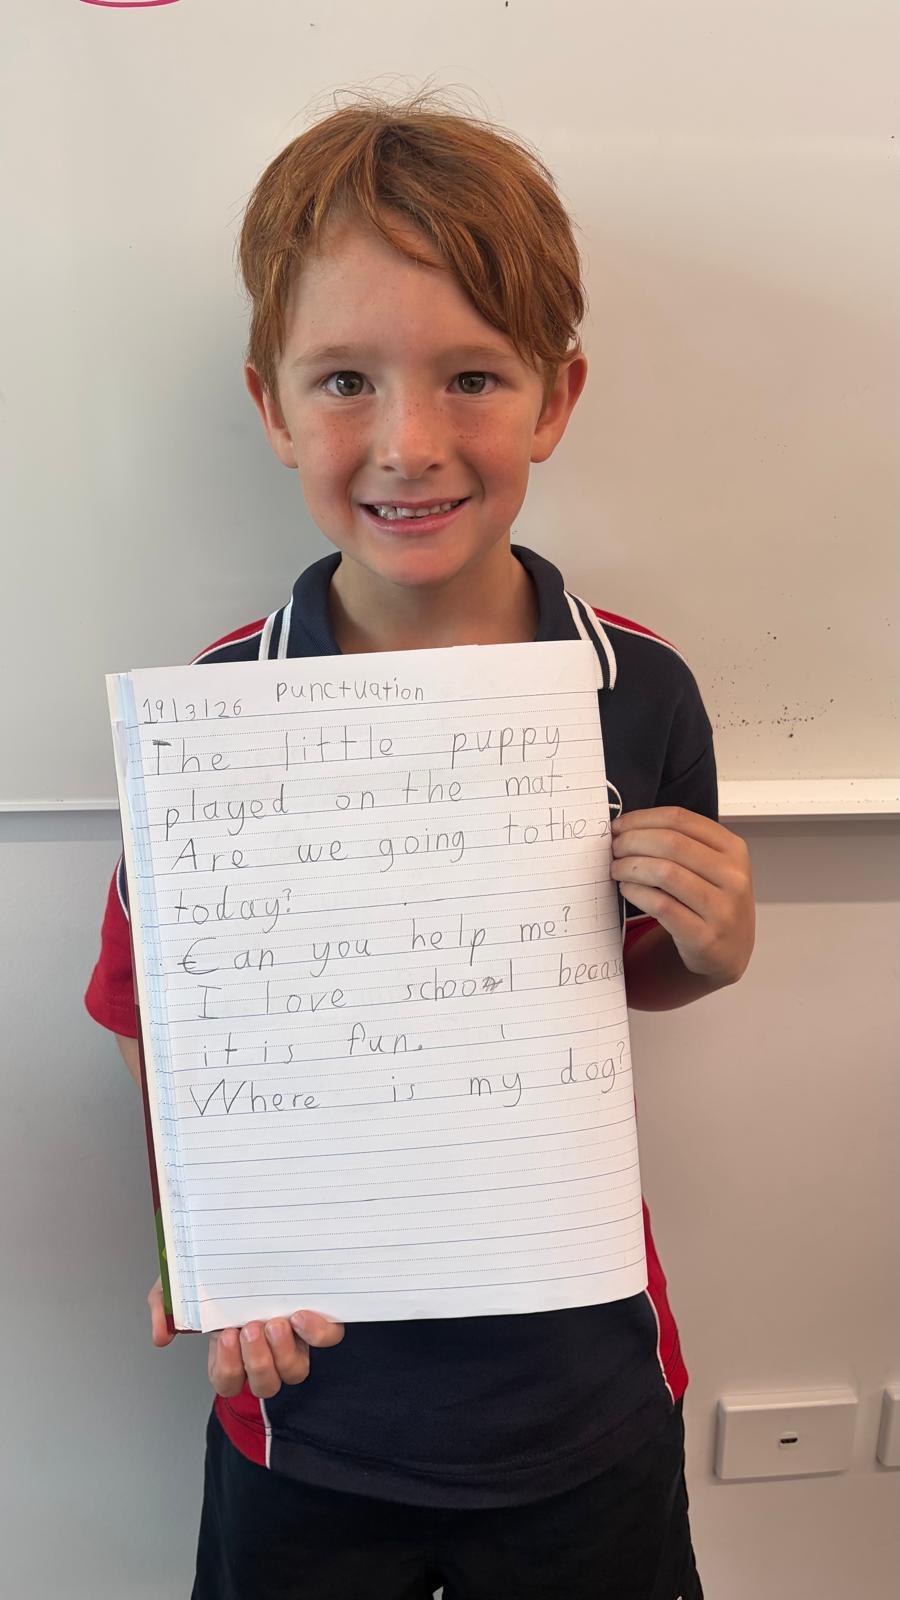 Punctuation
19/3/26
The little puppy
played on the mat.
Are we going to the
today?
Can you help me?
I love school
it is fun.
Where is my dog?